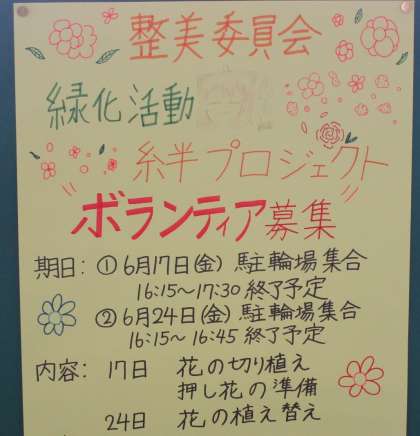 整美委員会
緑化活動
糸半プロジェクト
ボランティア募集
期日: ①6月17日(金) 駐輪場集合
16:15〜17:30 終了予定
②6月24日(金) 駐輪場集合
16:15〜16:45 終了予定
内容: 17日 花の切り植え
押し花の準備
24日 花の植え替え